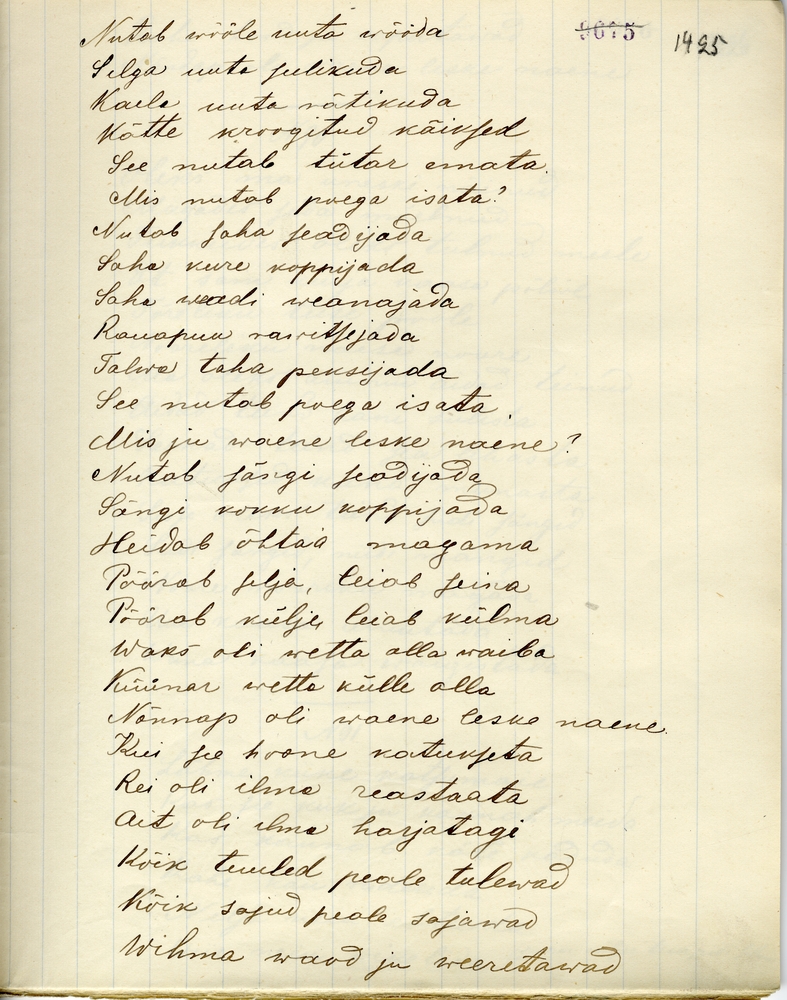 9615 1495
Nutab wööle uuta wööda
Selga uuta seelikuda
Kaela uuta rätikuda
Kätte kroogitud käiksed
See nutab tütar emata.
Mis nutab poega isata?
Nutab saha seadijada
Saha kure koppijada
Saha weadi weanajada
Rauapuu rawitsejada
Talwe taha peksijada
See nutab poega isata.
Mis ju waene leske naene?
Nutab sängi seadijada
Sängi kokku koppijada
Heidab õhtaa magama
Pöörab selja, leiab seina
Pöörab külje, leiab külma
Waks oli wetta alla waiba
Küünar wetta külle alla
Nönnap oli waene leske naene.
Kui see hoone katukseta
Rei oli ilma reastaata
Ait oli ilma harjatagi
Kõik tuuled peale tulewad
Kõik sajud peale sajawad
Wihma waod ju weeretawad